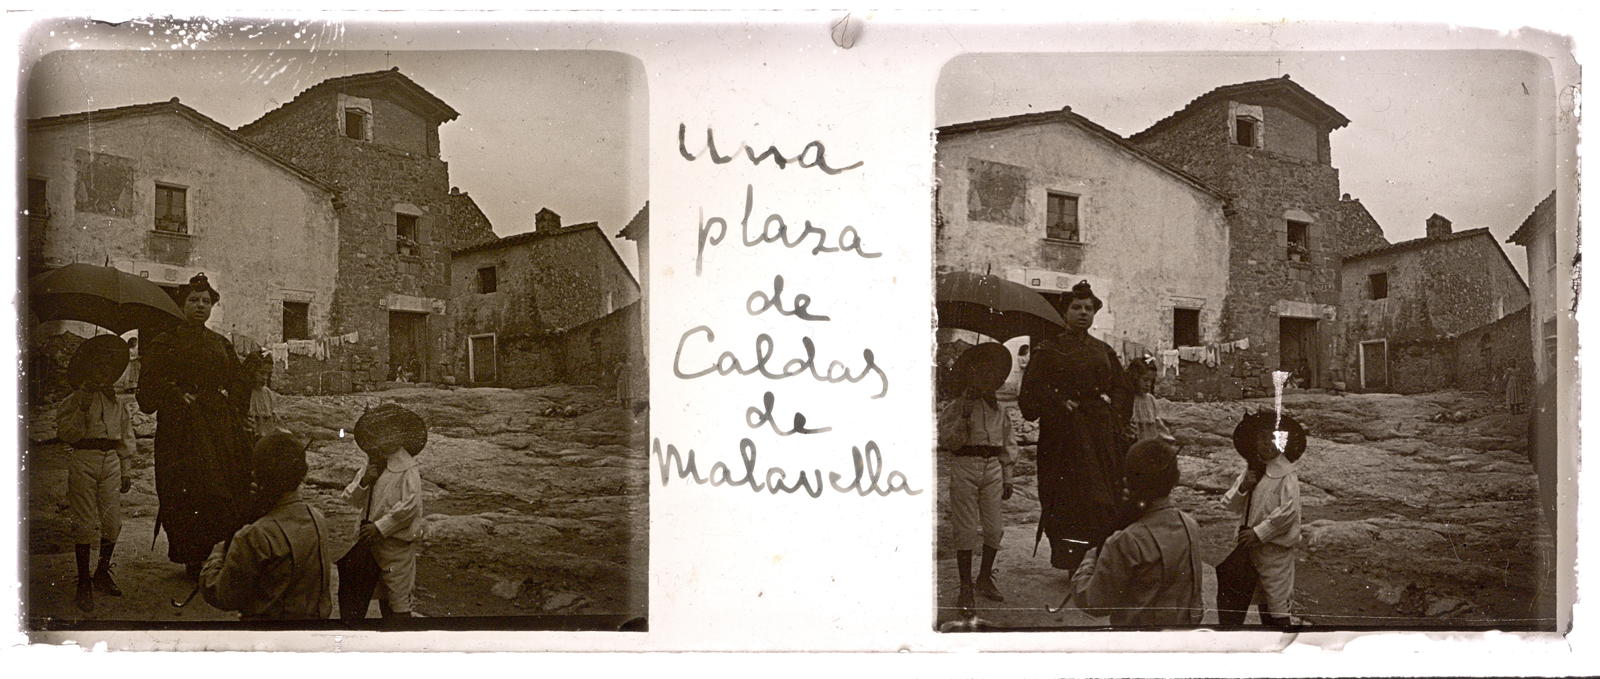 Una
plaza
de
Caldas
de
Malavella